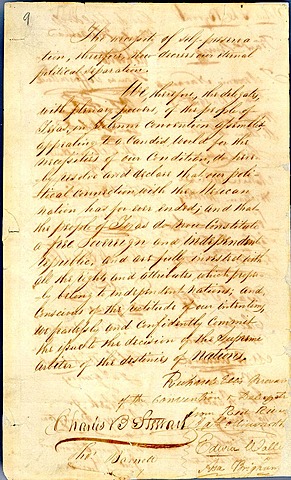 9
The necessity of self-preserva-
tion, therefore, now decrees our eternal
political separation.
We, therefore, the delegates,
with plenary powers, of the people of
Texas, in solemn convention assembled,
appealing to a candid world for the
necessities of our condition, do here-
by resolve and declare that our poli-
tical connection with the Mexican
nation has forever ended; and that
the people of Texas do now constitute
a free Sovereign and independent
republic, and are fully invested with
all the rights and attributes which proper-
ly belong to independent nations; and,
conscious of the rectitude of our intentions,
we fearlessly and confidently commit
the issue to the decision of the Supreme
Arbiter of the destinies of Nations.
Richard Ellis President
of the convention & Delegate
from Red River
Charles B Stewart
Thos Barnett
Edwin
Asa Brigham